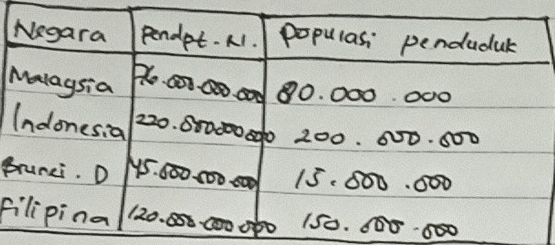 Negara Pendpt. N. Populasi penduduk
Malaysia 76.000.000.000 80.000.000
Indonesia 220.000.000.000 200.000.000
Brunei. D 45.000.000.000 15.000.000
Filipina 120.000.000.000 150.000.000